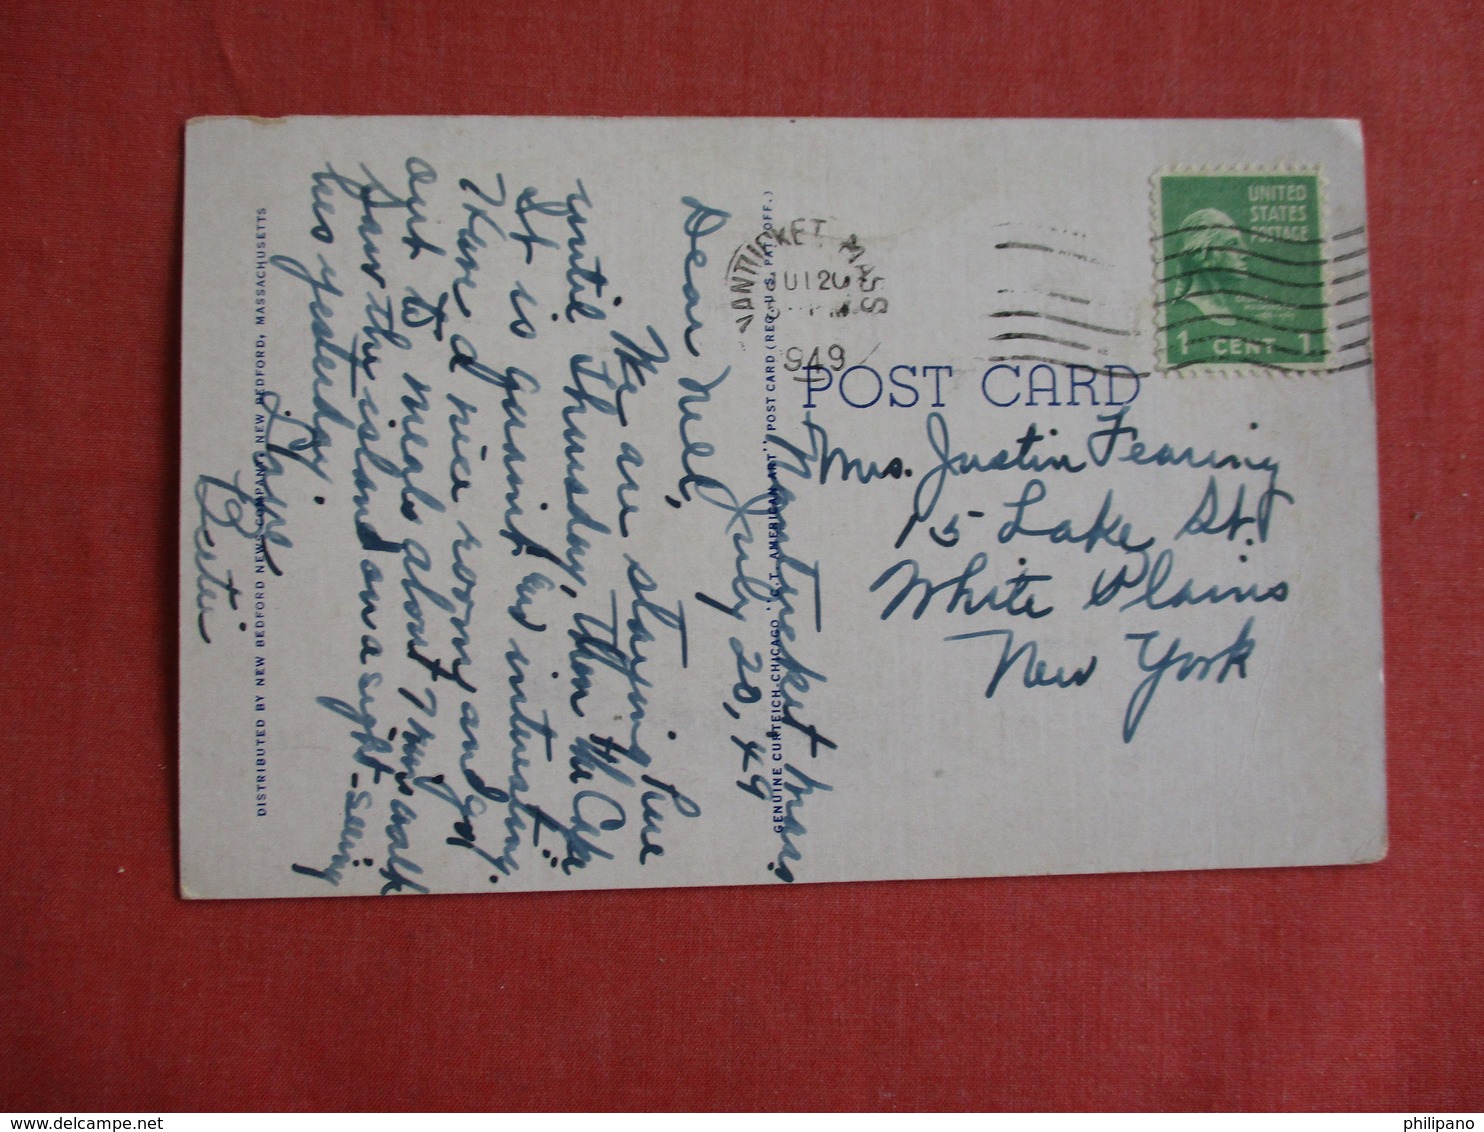 Nantucket Mass.
July 20, 49
Dear Nell,
We are staying here
until Thursday, then the Cape
It is quaint and interesting.
Have a nice room and go
out to meals about 7 min walk
Saw the island on a sight-seeing
bus yesterday.
Love
DISTRIBUTED BY NEW BEDFORD NEWS COMPANY, NEW BEDFORD, MASSACHUSETTS
GENUINE CURTEICH-CHICAGO "C.T. AMERICAN ART" POST CARD (REG. U.S. PAT. OFF.)
NANTUCKET MASS
1949
UNITED
STATES
POSTAGE
1 CENT 1
POST CARD
Mrs. Justin Fearing
15 Lake St.
White Plains
New York
philipano